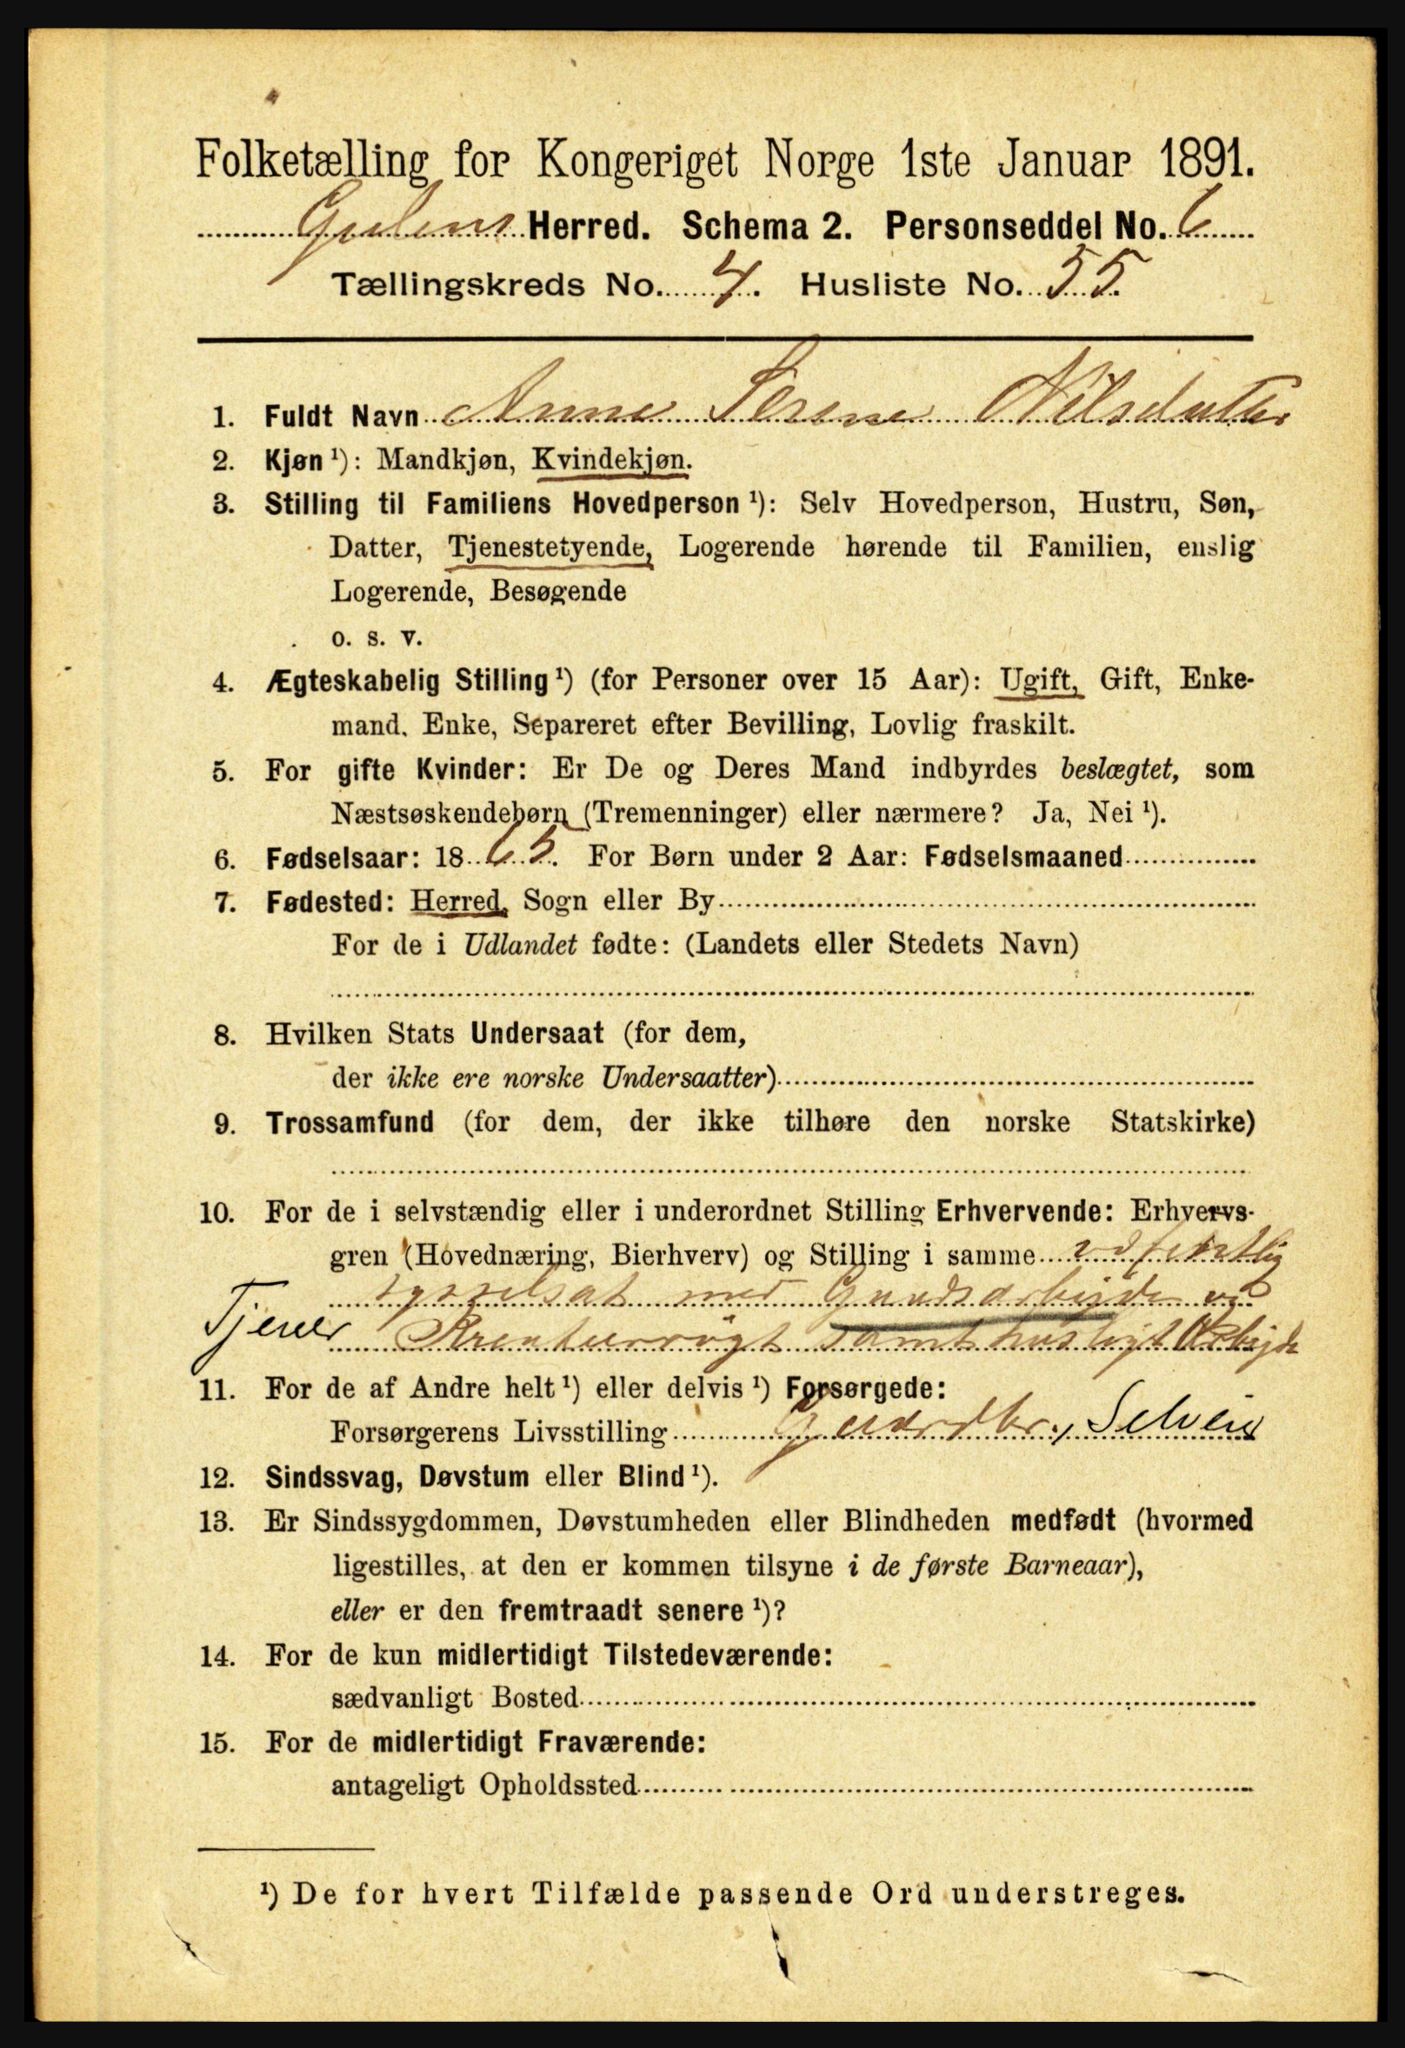 Folketælling for Kongeriget Norge 1ste Januar 1891.
Gulens Herred. Schema 2. Personseddel No. 6
Tællingskreds No. 4. Husliste No. 55.
1. Fuldt Navn Anne Serene Nilsdatter
2. Kjøn ¹): Mandkjøn, Kvindekjøn.
3. Stilling til Familiens Hovedperson ¹): Selv Hovedperson, Hustru, Søn,
Datter, Tjenestetyende, Logerende hørende til Familien, enslig
Logerende, Besøgende
o. s. v.
4. Ægteskabelig Stilling ¹) (for Personer over 15 Aar): Ugift, Gift, Enke-
mand, Enke, Separeret efter Bevilling, Lovlig fraskilt.
5. For gifte Kvinder: Er De og Deres Mand indbyrdes beslægtet, som
Næstsøskendebørn (Tremenninger) eller nærmere? Ja, Nei ¹).
6. Fødselsaar: 1865. For Børn under 2 Aar: Fødselsmaaned
7. Fødested: Herred, Sogn eller By
For de i Udlandet fødte: (Landets eller Stedets Navn)
8. Hvilken Stats Undersaat (for dem,
der ikke ere norske Undersaatter)
9. Trossamfund (for dem, der ikke tilhøre den norske Statskirke)
10. For de i selvstændig eller i underordnet Stilling Erhvervende: Erhvervs-
gren (Hovednæring, Bierhverv) og Stilling i samme
sysselsat med Gaardsarbeide
Tjener Kreaturrøgt samt husligt Arbejde
11. For de af Andre helt ¹) eller delvis ¹) Forsørgede:
Forsørgerens Livsstilling Gaardbr., Selveier
12. Sindssvag, Døvstum eller Blind ¹).
13. Er Sindssygdommen, Døvstumheden eller Blindheden medfødt (hvormed
ligestilles, at den er kommen tilsyne i de første Barneaar),
eller er den fremtraadt senere ¹)?
14. For de kun midlertidigt Tilstedeværende:
sædvanligt Bosted
15. For de midlertidigt Fraværende:
antageligt Opholdssted
¹) De for hvert Tilfælde passende Ord understreges.